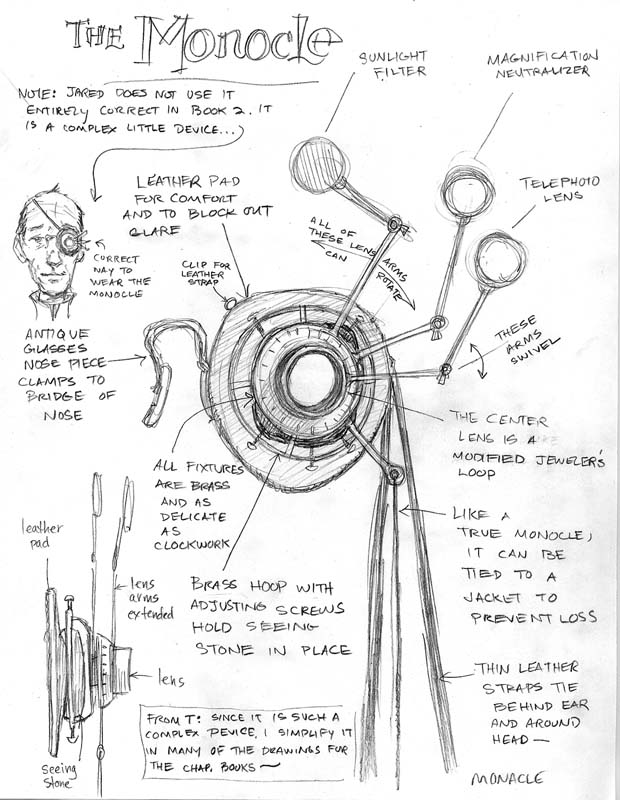 THE MONOCLE
NOTE: JARED DOES NOT USE IT
ENTIRELY CORRECT IN BOOK 2. IT
IS A COMPLEX LITTLE DEVICE...
SUNLIGHT
FILTER
MAGNIFICATION
NEUTRALIZER
TELEPHOTO
LENS
LEATHER PAD
FOR COMFORT
AND TO BLOCK OUT
GLARE
ALL OF
THESE LENS ARMS
CAN ROTATE
CORRECT
WAY TO
WEAR THE
MONOCLE
CLIP FOR
LEATHER
STRAP
THESE
ARMS
SWIVEL
ANTIQUE
GLASSES
NOSE PIECE
CLAMPS TO
BRIDGE OF
NOSE
THE CENTER
LENS IS A
MODIFIED JEWELER'S
LOOP
ALL FIXTURES
ARE BRASS
AND AS
DELICATE
AS
CLOCKWORK
LIKE A
TRUE MONOCLE,
IT CAN BE
TIED TO A
JACKET TO
PREVENT LOSS
leather
pad
lens
arms
extended
BRASS HOOP WITH
ADJUSTING SCREWS
HOLD SEEING
STONE IN PLACE
lens
THIN LEATHER
STRAPS TIE
BEHIND EAR
AND AROUND
HEAD —
FROM T: SINCE IT IS SUCH A
COMPLEX DEVICE, I SIMPLIFY IT
IN MANY OF THE DRAWINGS FOR
THE CHAP. BOOKS —
seeing
stone
MONACLE